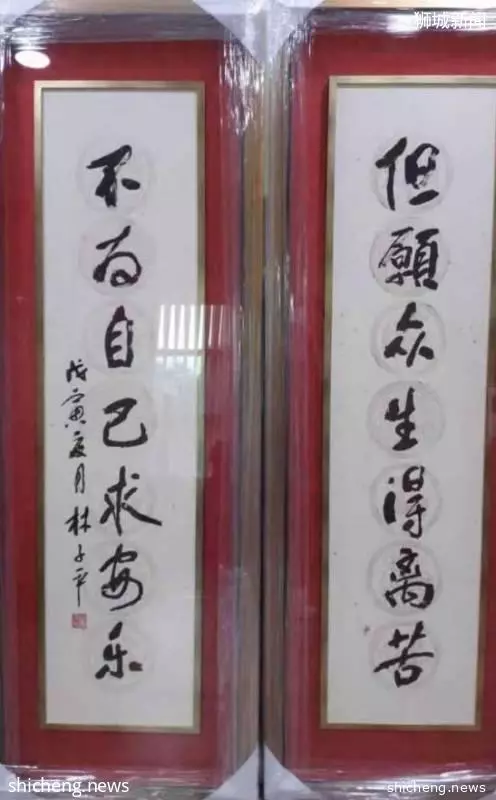 狮城新闻
但願众生得离苦
不为自己求安乐
戊寅夏月 林子平
shicheng.news
shicheng.news